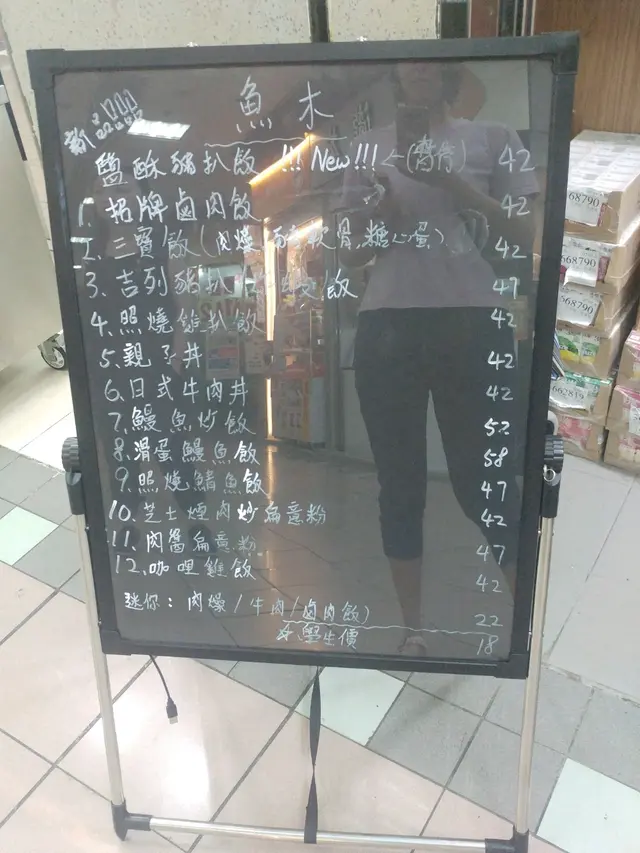 新品
魚木
鹽酥豬扒飯 !!! New!!! ←(醬骨) 42
1. 招牌鹵肉飯 42
2. 三寶飯(肉燥, 豬軟骨, 糖心蛋) 42
3. 吉列豬扒 飯 47
4. 照燒雞扒飯 42
5. 親子丼 42
6. 日式牛肉丼 42
7. 鰻魚炒飯 52
8. 滑蛋鰻魚飯 58
9. 照燒鯖魚飯 47
10. 芝士煙肉炒扁意粉 42
11. 肉醬扁意粉 47
12. 咖哩雞飯 42
迷你: 肉燥/牛肉/鹵肉飯) 22
學生價 18
568790
568790
568790
662819